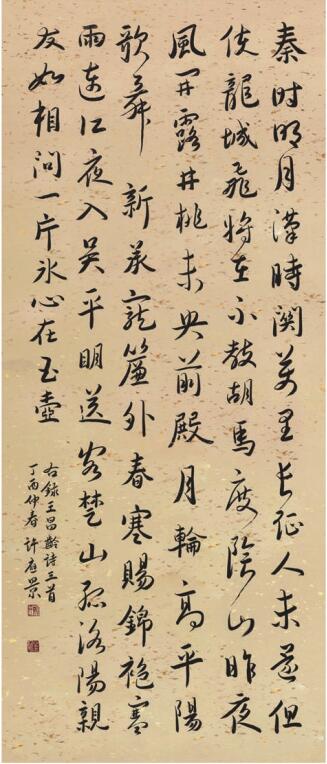 秦时明月漢時関萬里長征人未還但
使龍城飛將在不教胡馬度陰山昨夜
風開露井桃未央前殿月輪高平陽
歌舞新承寵簾外春寒賜錦袍寒
雨連江夜入吴平明送客楚山孤洛陽親
友如相問一片冰心在玉壺
右録王昌齡詩三首
丁酉仲春 許景